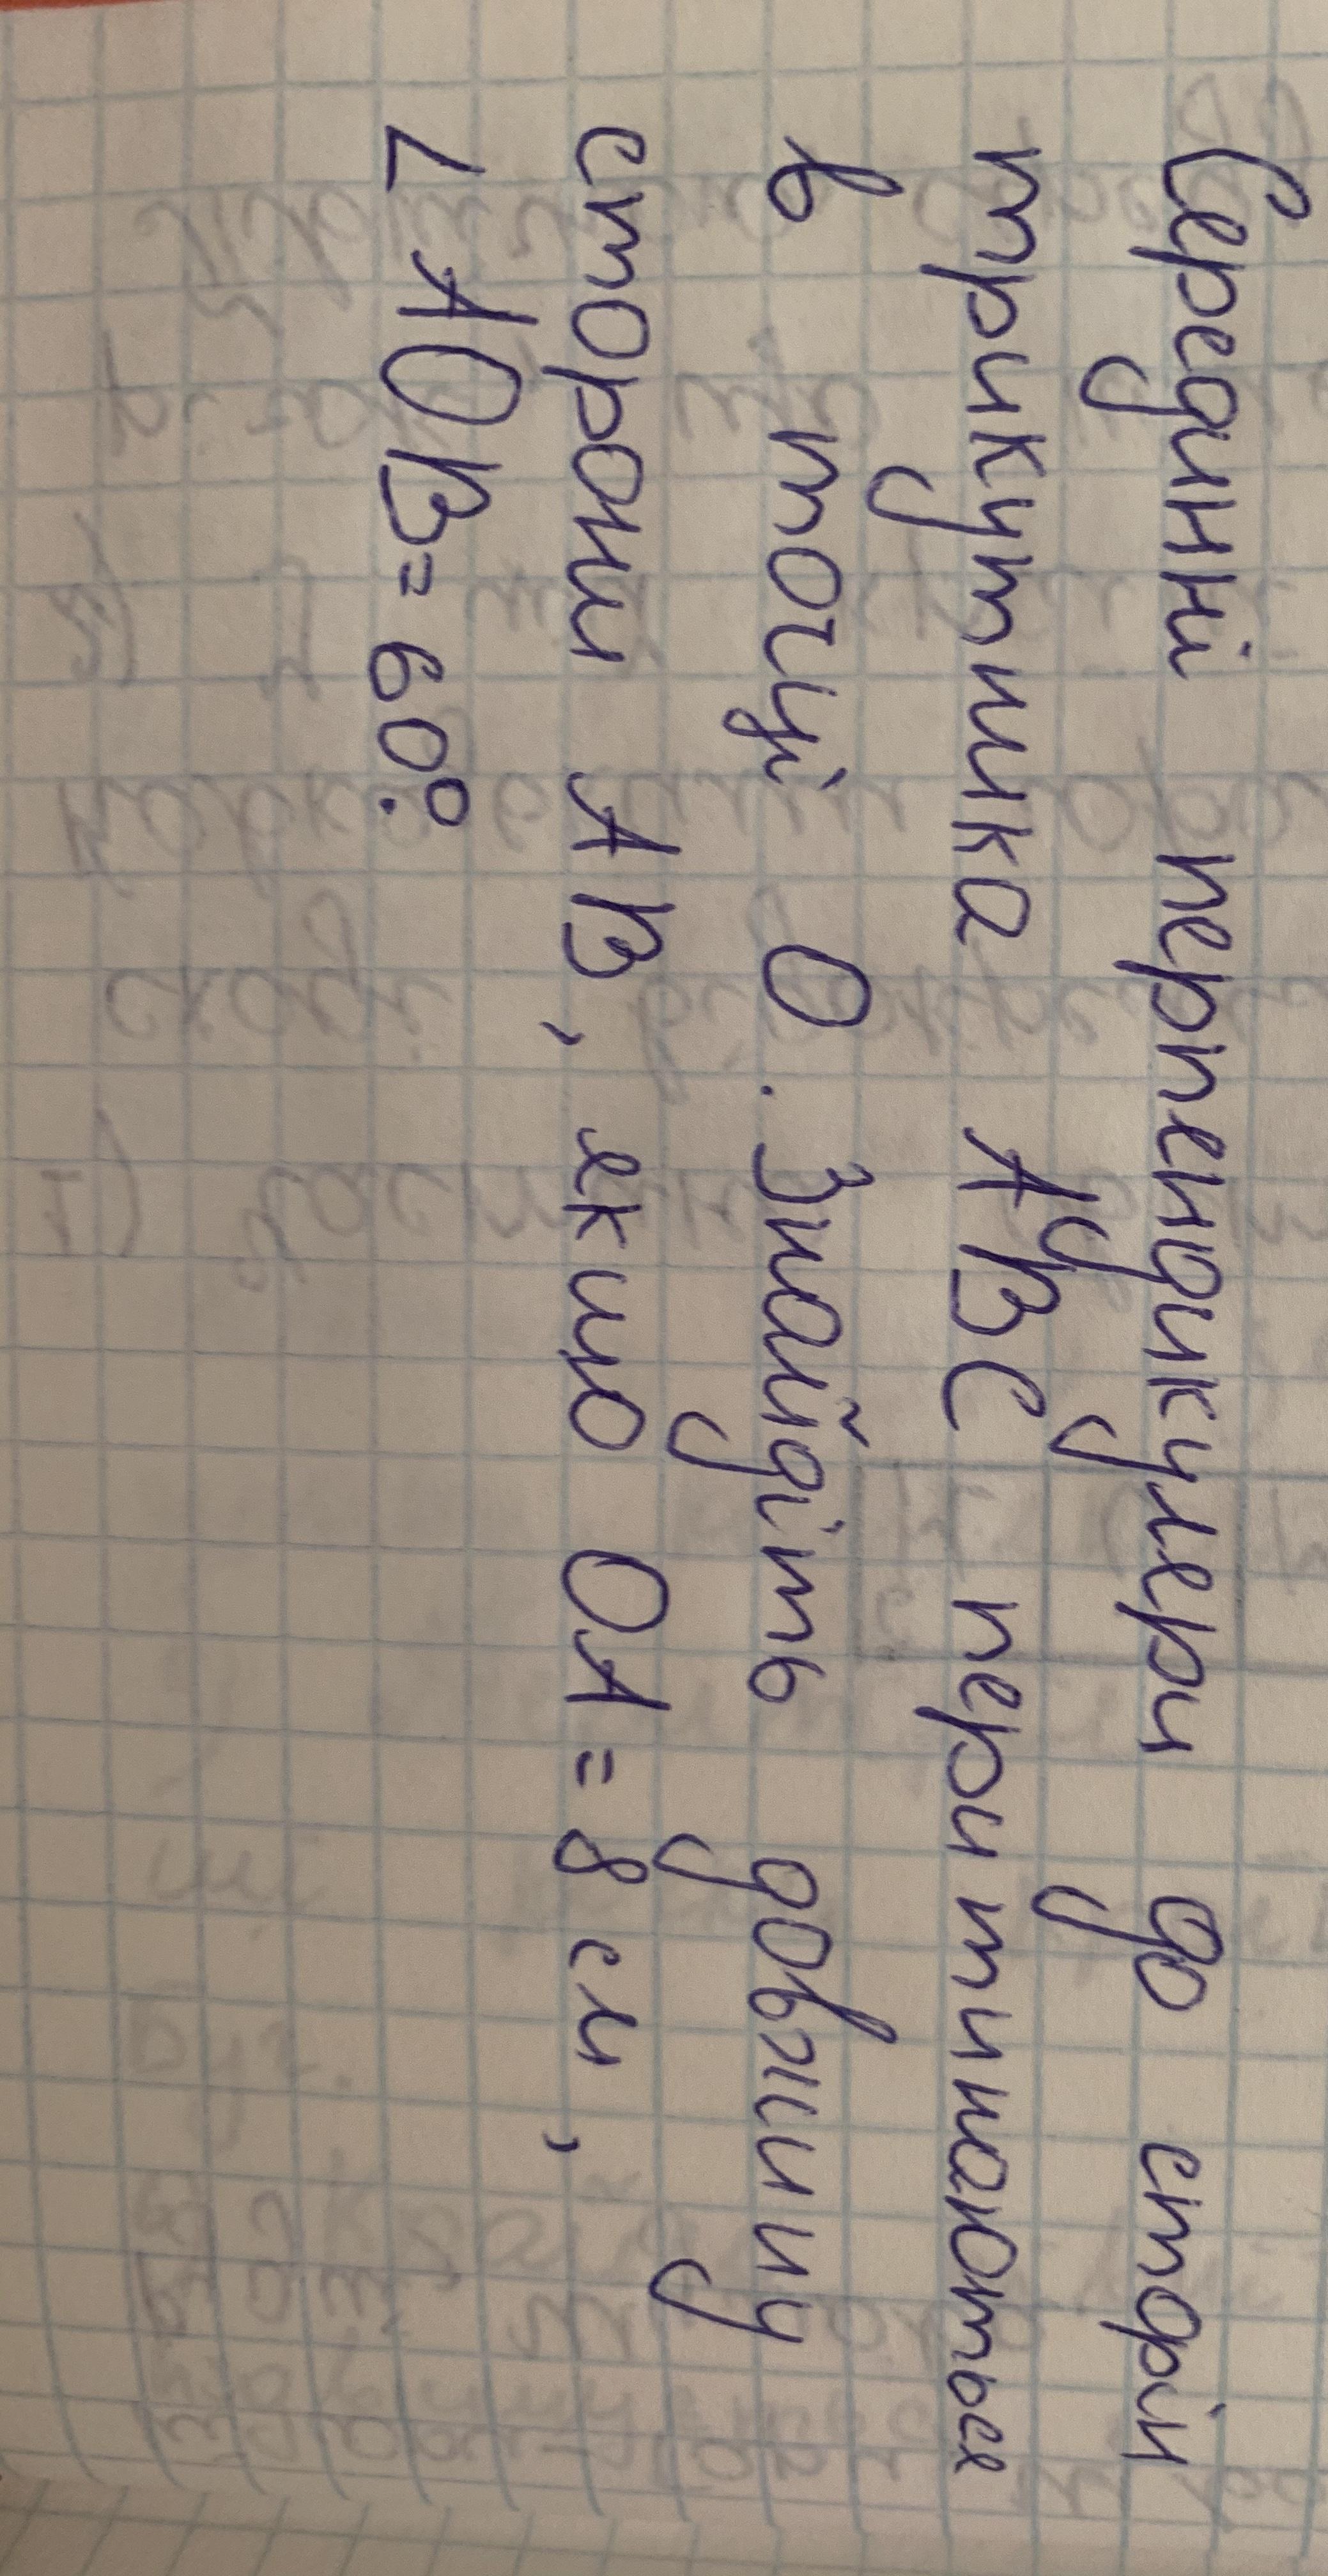 Серединні перпендикуляри до сторін
трикутника АВС перитинаються
в точці О. Знайдіть довжину
сторони АВ, якщо ОА = 8 см,
∠ АОВ = 60°.